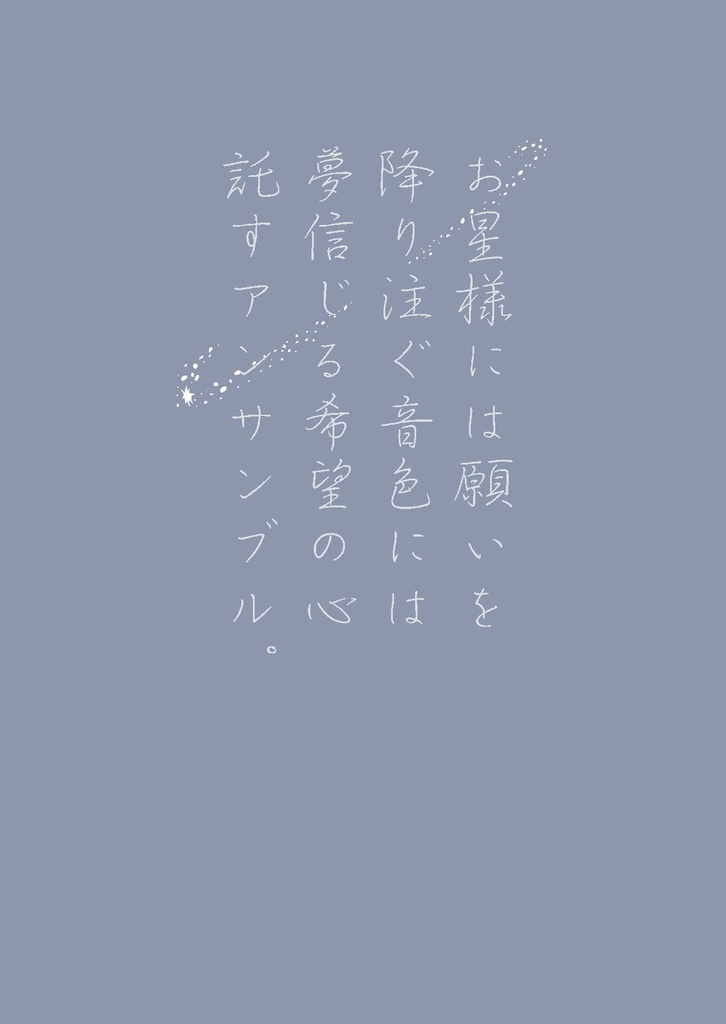 お星様には願いを
降り注ぐ音色には
夢信じる希望の心
託すアンサンブル。